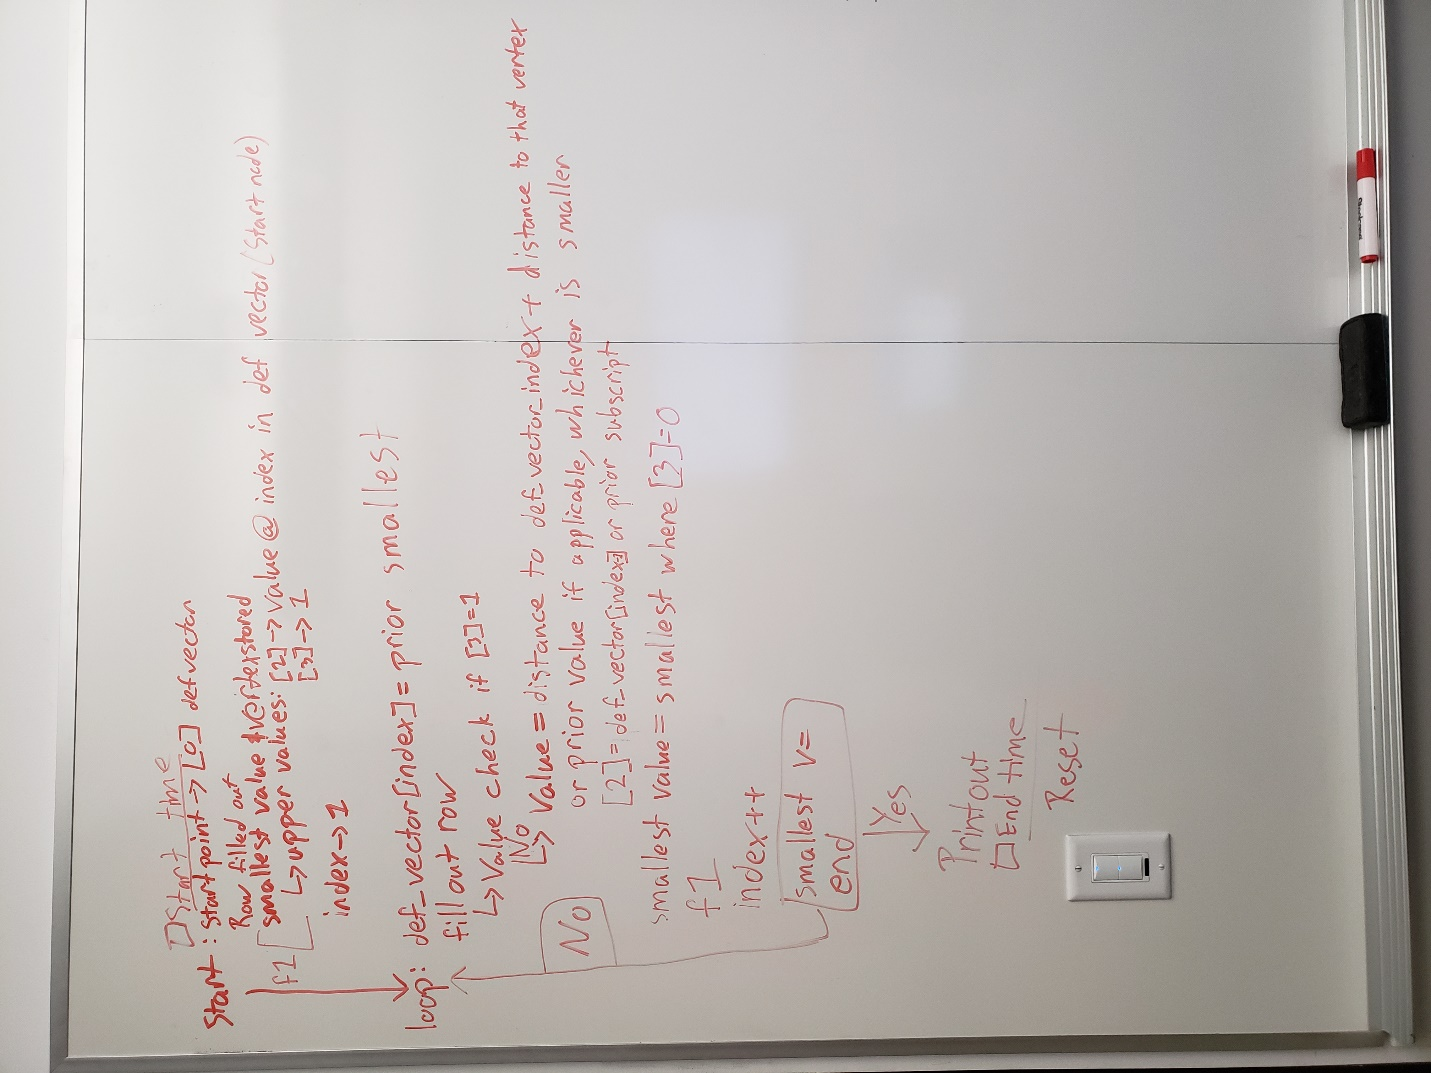 □ Start time
Start: Start point → [0] def vector
Row filled out
f1 [ smallest value + vertex stored
↳ upper values: [2] → value @ index in def vector (Start node)
[3] → 1
index → 1
loop: def_vector[index] = prior smallest
fill out row
↳ Value check if [3]=1
No
↳ Value = distance to def_vector_index + distance to that vertex
or prior value if applicable, whichever is smaller
[2] = def_vector[index] or prior subscript
smallest value = smallest where [3]=0
f1
index++
smallest v =
end
No
Yes
Print out
□ End time
Reset